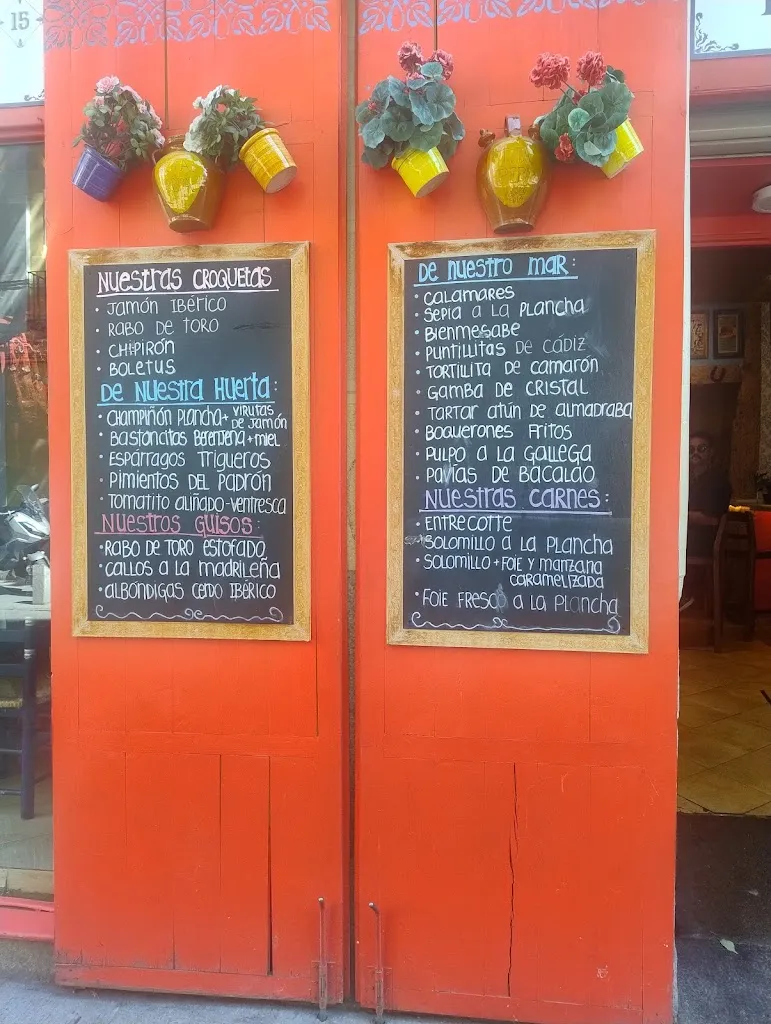 15
NUESTRAS CROQUETAS
• JAMÓN IBÉRICO
• RABO DE TORO
• CHIPIRÓN
• BOLETUS
DE NUESTRA HUERTA:
• CHAMPIÑÓN PLANCHA + VIRUTAS DE JAMÓN
• BASTONCITOS BERENJENA + MIEL
• ESPÁRRAGOS TRIGUEROS
• PIMIENTOS DEL PADRÓN
• TOMATITO ALIÑADO-VENTRESCA
NUESTROS GUISOS:
• RABO DE TORO ESTOFADO
• CALLOS A LA MADRILEÑA
• ALBÓNDIGAS CERDO IBÉRICO
DE NUESTRO MAR:
• CALAMARES
• SEPIA A LA PLANCHA
• BIENMESABE
• PUNTILLITAS DE CÁDIZ
• TORTILLITA DE CAMARÓN
• GAMBA DE CRISTAL
• TARTAR ATÚN DE ALMADRABA
• BOQUERONES FRITOS
• PULPO A LA GALLEGA
• PAVIAS DE BACALAO
NUESTRAS CARNES:
• ENTRECOTTE
• SOLOMILLO A LA PLANCHA
• SOLOMILLO + FOIE Y MANZANA
CARAMELIZADA
• FOIE FRESCO A LA PLANCHA